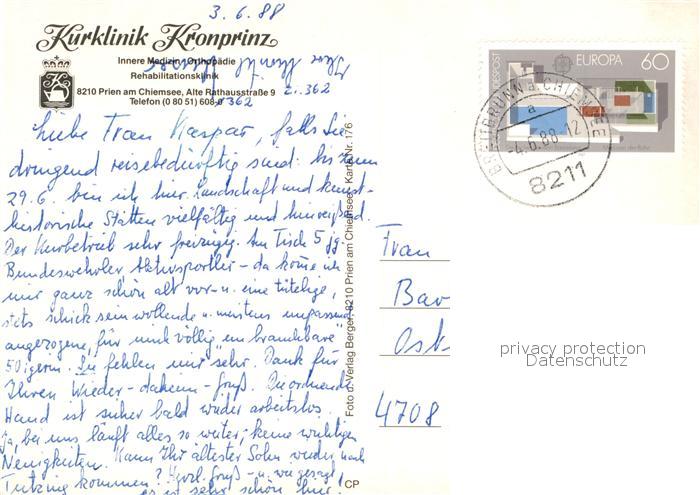 3.6.88
Kurklinik Kronprinz
Innere Medizin · Orthopädie
Rehabilitationsklinik
8210 Prien am Chiemsee, Alte Rathausstraße 9
Telefon (0 80 51) 608-0 362
Z. 362
Liebe Frau Kaspar, falls Sie
dringend reisebedürftig sind: bis zum
29.6. bin ich hier. Landschaft und kunst-
historische Stätten vielfältig und hinreißend.
Der Kurbetrieb sehr freizügig. Am Tisch 5 jg.
Bundeswehrler, Aktivsportler - da komme ich
mir ganz schön alt vor - u. eine
stets schick sein wollende u. meistens unpassend
angezogene, für mich völlig "unbrauchbare"
50igerin. Sie fehlen mir sehr. Dank für
Ihren Wieder-daheim-Gruß. Die ordnende
Hand ist sicher bald wieder arbeitslos.
Ja, bei uns läuft alles so weiter; keine wichtigen
Neuigkeiten. Kann Ihr ältester Sohn wieder nach
Tutzing kommen? Herzl. Gruß - u. wie gesagt,
es ist sehr schön hier!
Foto u. Verlag Berger, 8210 Prien am Chiemsee, Karte Nr. 176
CP
BUNDESPOST
EUROPA 60
BREITBRUNN a. CHIEMSEE
a
-4.6.88-12
8211
Frau
Bar
Ost
4708
privacy protection
Datenschutz